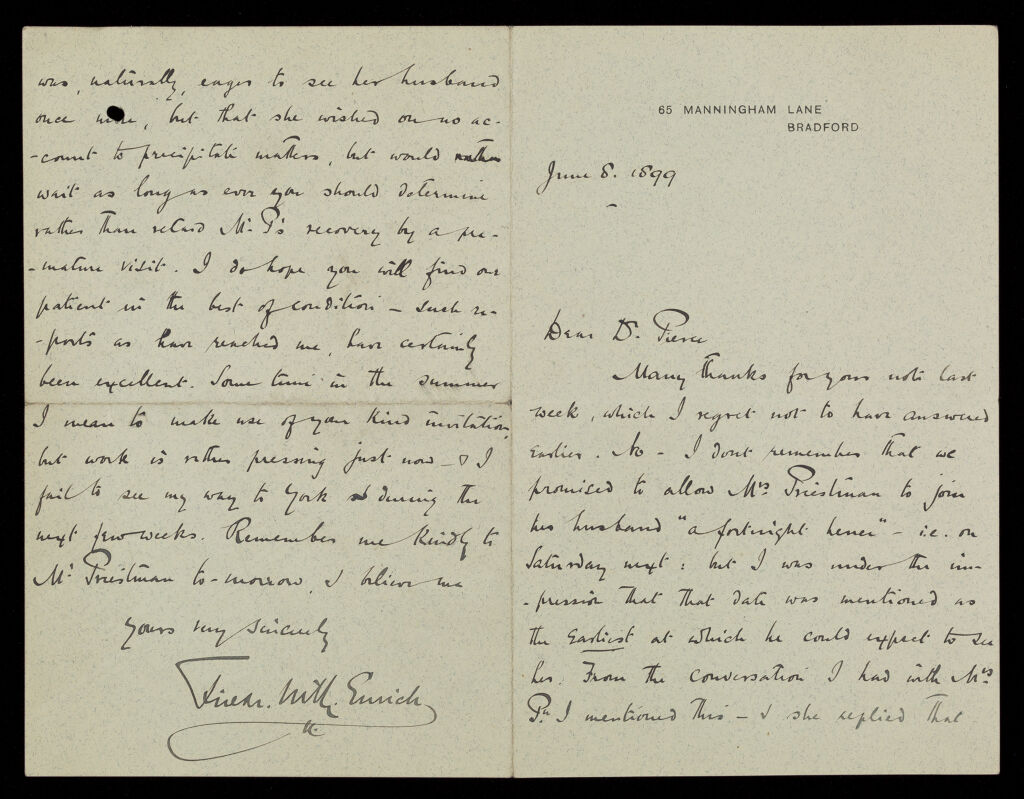 65 MANNINGHAM LANE
BRADFORD
June 8. 1899
Dear Dr. Pierce
Many thanks for your note last
week, which I regret not to have answered
earlier. No – I dont remember that we
promised to allow Mrs. Priestman to join
her husband "a fortnight hence" – i.e. on
Saturday next: but I was under the im-
-pression that that date was mentioned as
the earliest at which he could expect to see
her. From the conversation I had with Mrs.
Pn. I mentioned this – & she replied that
was, naturally, eager to see her husband
once more, but that she wished on no ac-
-count to precipitate matters, but would rather
wait as long as ever you should determine
rather than retard Mr. P's recovery by a pre-
-mature visit. I do hope you will find our
patient in the best of condition – such re-
-ports as have reached me, have certainly
been excellent. Some time in the summer
I mean to make use of your kind invitation,
but work is rather pressing just now – & I
fail to see my way to York during the
next few weeks. Remember me kindly to
Mr. Priestman to-morrow, & believe me
Yours very sincerely
Fredr. Wm. Eurich